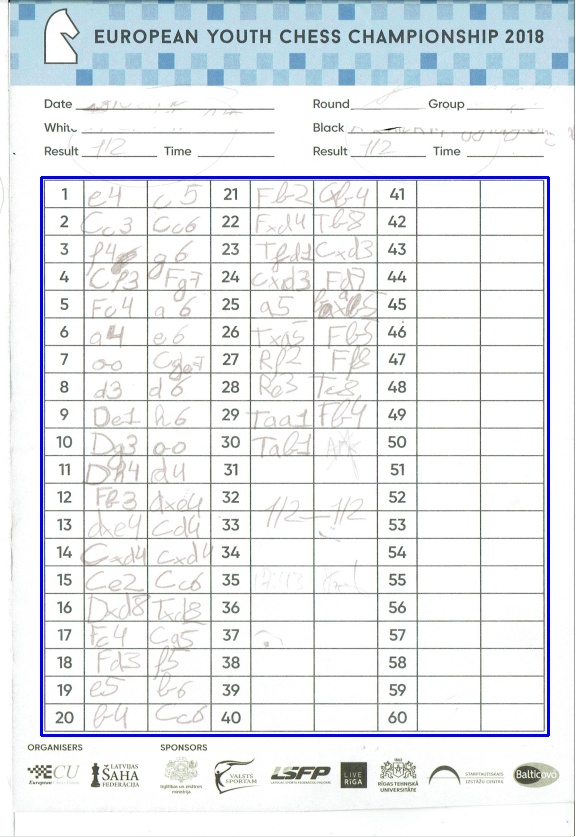 EUROPEAN YOUTH CHESS CHAMPIONSHIP 2018
Date Round Group
White Black
Result 1/2 Time Result 1/2 Time
1 e4 c5 21 Fb2 Qb4 41
2 Cc3 Cc6 22 Fxd4 Tb8 42
3 f4 g6 23 Tfd1 Cxd3 43
4 Cf3 Fg7 24 cxd3 Fd7 44
5 Fc4 a6 25 a5 45
6 a4 e6 26 Txa5 Fb5 46
7 oo Cge7 27 Rf2 Ff8 47
8 d3 d6 28 Re3 Tc8 48
9 De1 h6 29 Taa1 Fb4 49
10 Dg3 oo 30 Tab1 50
11 Dh4 d4 31 51
12 Fb3 dxe4 32 52
13 dxe4 Cd4 33 1/2 — 1/2 53
14 Cxd4 cxd4 34 54
15 Ce2 Cc6 35 55
16 Dxd8 Txd8 36 56
17 Fc4 Ca5 37 57
18 Fd3 f5 38 58
19 e5 b6 39 59
20 b4 Cc6 40 60
ORGANISERS SPONSORS
ECU
European Chess Union
LATVIJAS
ŠAHA
FEDERĀCIJA
Izglītības un zinātnes
ministrija
VALSTS
SPORTAM
LSFP
LIVE
RĪGA
RĪGAS TEHNISKĀ
UNIVERSITĀTE
STARPTAUTISKAIS
IZSTĀŽU CENTRS
Balticovo